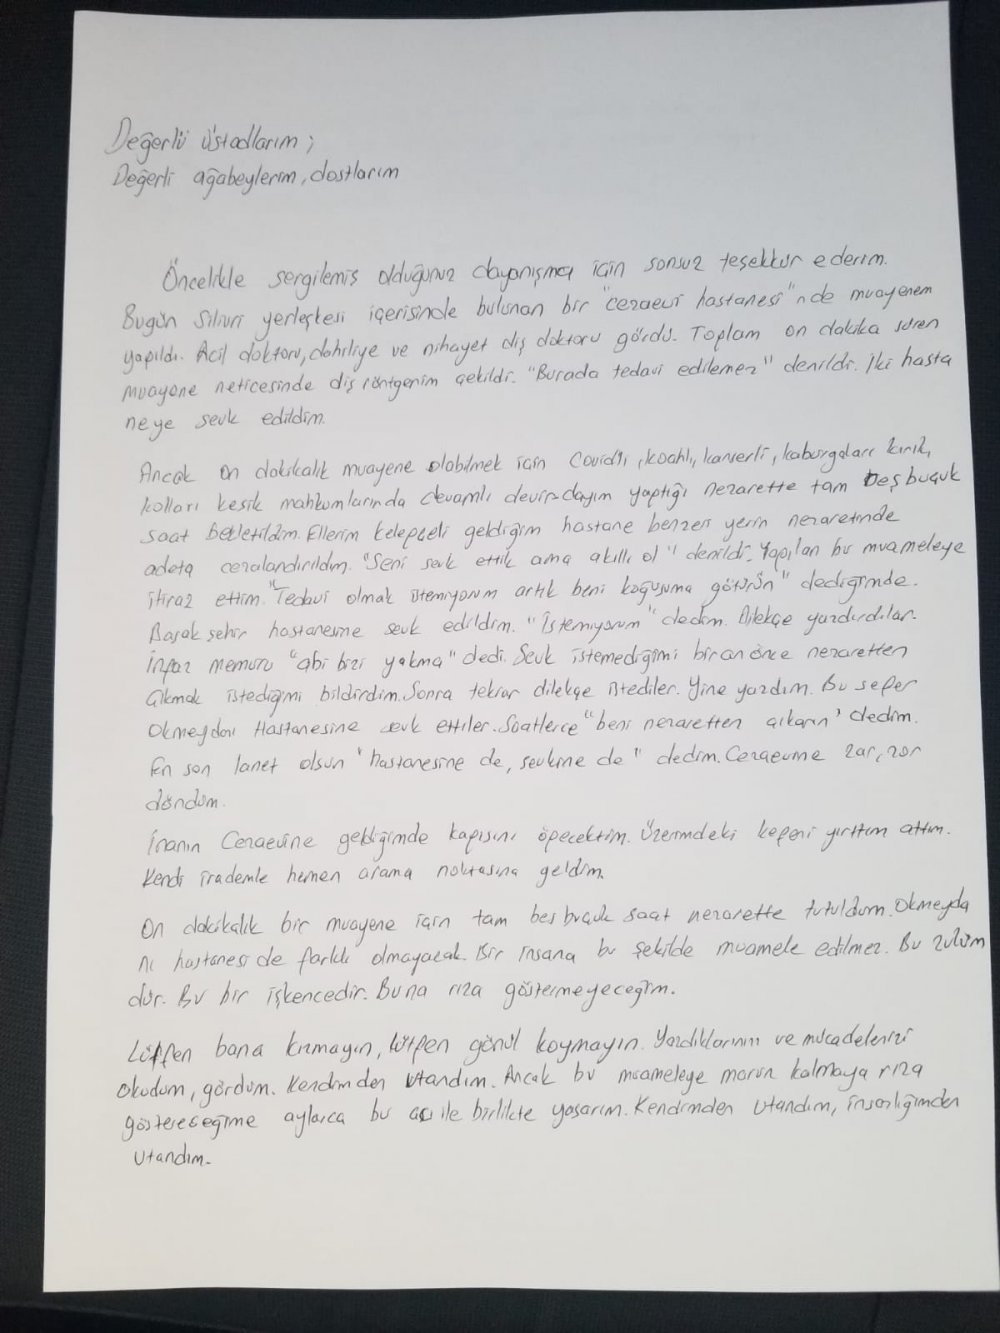 Değerli üstadlarım;
Değerli ağabeylerim, dostlarım
Öncelikle sergilemiş olduğunuz dayanışma için sonsuz teşekkür ederim.
Bugün Silivri yerleşkesi içerisinde bulunan bir "cezaevi hastanesi"nde muayenem
yapıldı. Acil doktoru, dahiliye ve nihayet diş doktoru gördü. Toplam on dakika süren
muayene neticesinde diş röntgenim çekildi. "Burada tedavi edilemez" denildi. İki hasta
neye sevk edildim.
Ancak on dakikalık muayene olabilmek için covidli, koahlı, kanserli, kaburgaları kırık,
kolları kesik mahkumlarında devamlı devirdayım yaptığı nezarette tam beş buçuk
saat bekletildim. Ellerim kelepçeli geldiğim hastane benzeri yerin nezaretinde
adeta cezalandırıldım. "Seni sevk ettik ama akıllı ol" denildi. Yapılan bu muameleye
itiraz ettim. "Tedavi olmak istemiyorum artık beni koğuşuma götürün" dediğimde.
Başakşehir hastanesine sevk edildim. "İstemiyorum" dedim. Dilekçe yazdırdılar.
İnfaz memuru "abi bizi yakma" dedi. Sevk istemediğimi biran önce nezaretten
çıkmak istediğimi bildirdim. Sonra tekrar dilekçe istediler. Yine yazdım. Bu sefer
Okmeydanı Hastanesine sevk ettiler. Saatlerce "beni nezaretten çıkarın" dedim.
En son lanet olsun "hastanesine de, sevkine de" dedim. Cezaevime zar, zor
döndüm.
İnanın Cezaevine geldiğimde kapısını öpecektim. Üzerimdeki kepeni yırttım attım.
Kendi irademle hemen arama noktasına geldim.
On dakikalık bir muayene için tam beş buçuk saat nezarette tutuldum. Okmeyda
nı hastanesi de farklı olmayacak. Bir insana bu şekilde muamele edilmez. Bu zulüm
dür. Bu bir işkencedir. Buna rıza göstermeyeceğim.
Lütfen bana kızmayın, lütfen gönül koymayın. Yazdıklarınızı ve mücadelenizi
okudum, gördüm. Kendimden utandım. Ancak bu muameleye maruz kalmaya rıza
göstereceğime aylarca bu acı ile birlikte yaşarım. Kendimden utandım, insanlığımdan
utandım.